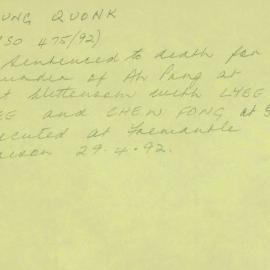 UNG QUONK
SO 475/92)
Sentenced to death for
murder of Ah Pong at
t Wittenoom with LYEE
EE and CHEW FONG at S
ecuted at Fremantle
rison 29.4.92.